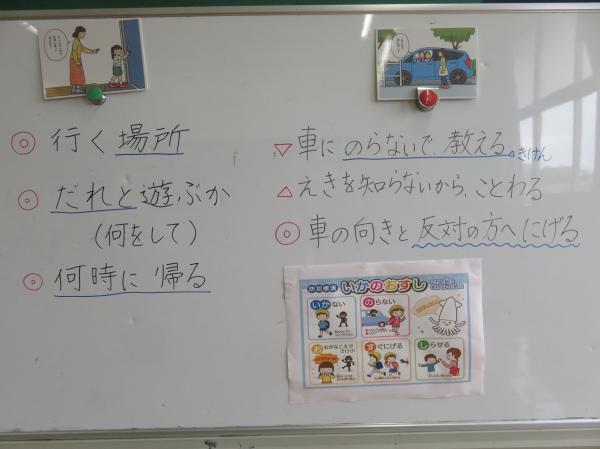 ◎ 行く場所
◎ だれと遊ぶか
(何をして)
◎ 何時に帰る
▽ 車にのらないで、教える
きけん
△ えきを知らないから、ことわる
◎ 車の向きと反対の方へにげる
防犯標語 いかのおすし
いかない
のらない
おおきなこえでさけぶ
すぐにげる
しらせる